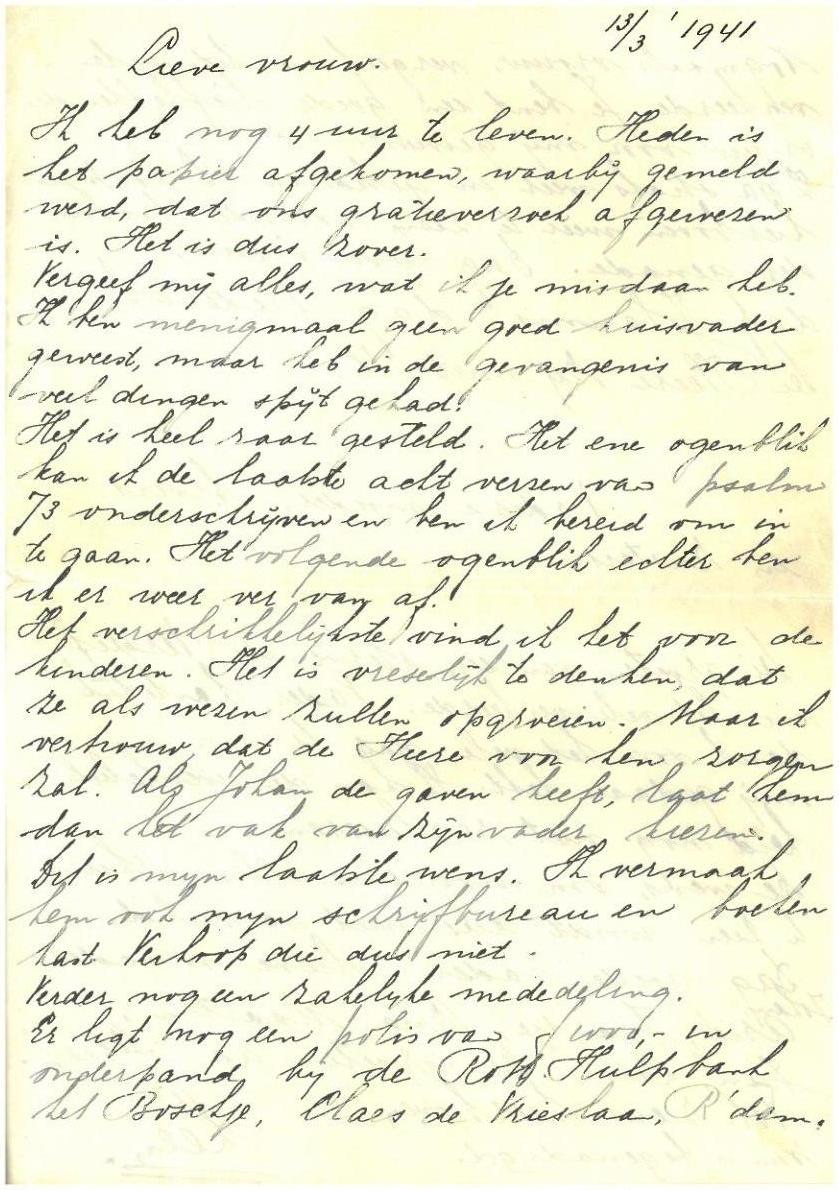 13/3 ' 1941
Lieve vrouw.
Ik heb nog 4 uur te leven. Heden is
het papier afgekomen, waarbij gemeld
werd, dat ons gratieverzoek afgewezen
is. Het is dus zover.
Vergeef mij alles, wat ik je misdaan heb.
Ik ben menigmaal geen goed huisvader
geweest, maar heb in de gevangenis van
veel dingen spijt gehad.
Het is heel raar gesteld. Het ene ogenblik
kan ik de laatste acht verzen van psalm
73 onderschrijven en ben ik bereid om in
te gaan. Het volgende ogenblik echter ben
ik er weer ver van af.
Het verschrikkelijkste vind ik het voor de
kinderen. Het is vreselijk te denken, dat
ze als wezen zullen opgroeien. Maar ik
vertrouw, dat de Heere voor hen zorgen
zal. Als Johan de gaven heeft, laat hem
dan het vak van zijn vader kiezen.
Dit is mijn laatste wens. Ik vermaak
hem ook mijn schrijfbureau en boeken
kast Verkoop die dus niet.
Verder nog een zakelijke mededeling.
Er ligt nog een polis van f 1000,- in
onderpand bij de Rott. Hulpbank
het Boschje, Claes de Vrieslaan, R'dam.